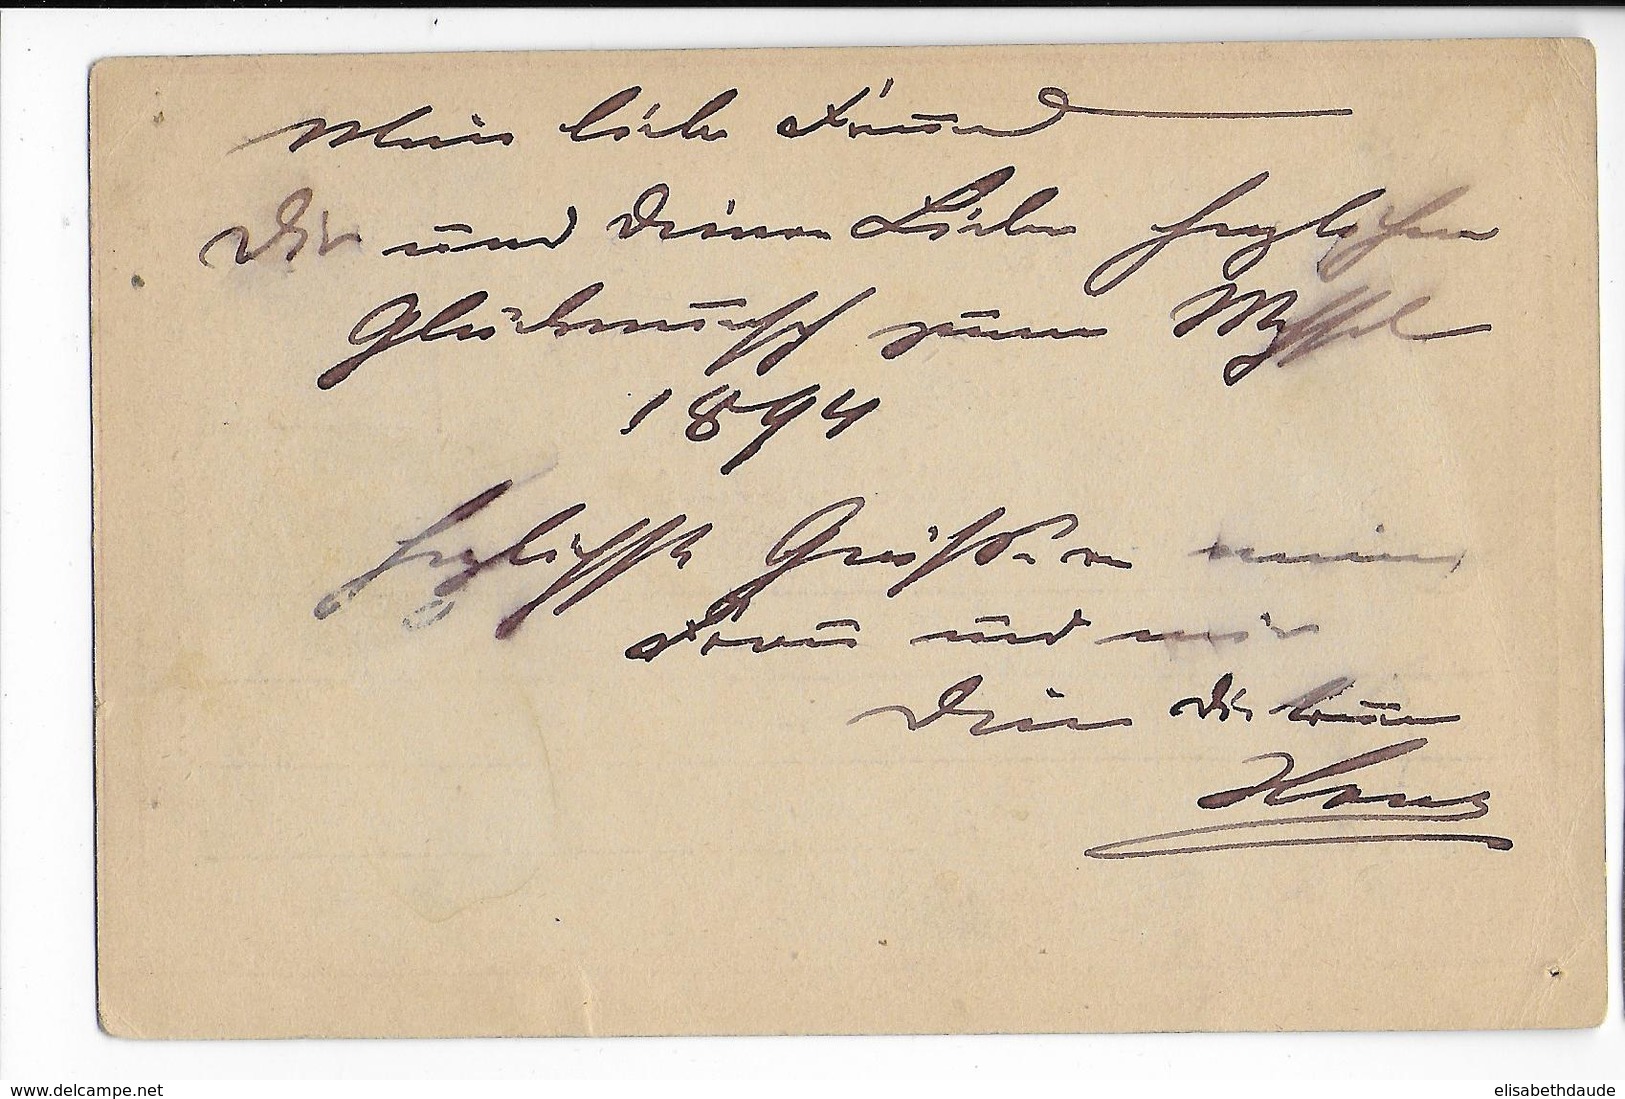 Mein lieber Freund
Dir und Deinen Lieben herzlichen
Glückwunsch zum
1894
herzlichste Grüße von meiner
Frau und mir
Dein Dir treuer
Hans
www.delcampe.net
elisabethdaude